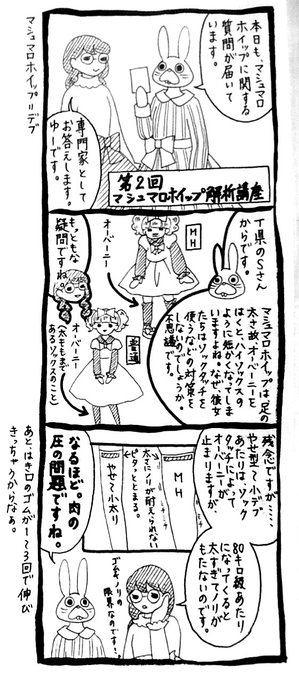 マシュマロホイップ＝デブ
本日も、マシュマロ
ホイップに関する
質問が届いて
います。
専門家として
お答えします。
ゆーです。
第2回
マシュマロホイップ解析講座
T県のSさん
からです。
マシュマロホイップは、足の
太さ故、オーバーニーを
はくとハイソックスの
ように短かくなってしま
いますよね。なぜ、彼女
たちはソックタッチを
使うなどの対策を
しないのでしょうか。
不思議です。
MH
オーバーニー
もっともな
疑問ですね
普通
オーバーニー
(太ももまで
あるソックスのこと)
残念ですが……
やせ型〜小デブ
あたりは、ソック
タッチによって
オーバーニーが
止まりますが
MH
太さにノリが耐えられない
ピタッととまる。
やせ〜小太り
なるほど。肉の
圧の問題ですね。
80キロ級あたり
になってくると
太すぎてノリが
もたないのです。
ゴム・ノリの
限界なのです…
あとはき口のゴムが1〜3回で伸び
きっちゃうからなぁ。